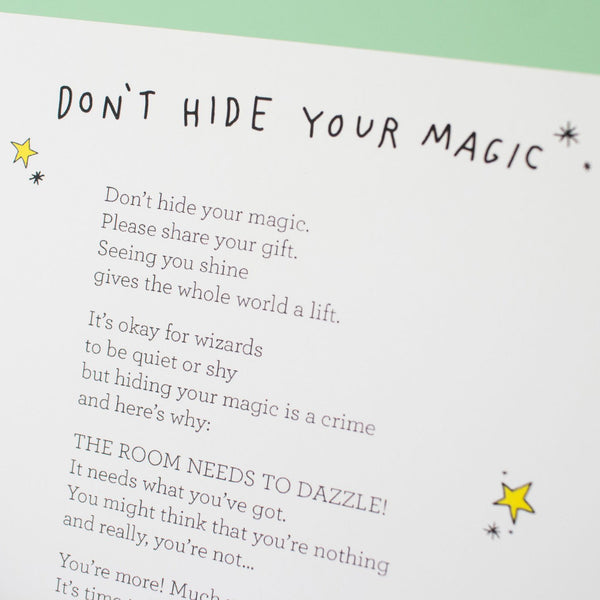 DON'T HIDE YOUR MAGIC
Don't hide your magic.
Please share your gift.
Seeing you shine
gives the whole world a lift.
It's okay for wizards
to be quiet or shy
but hiding your magic is a crime
and here's why:
THE ROOM NEEDS TO DAZZLE!
It needs what you've got.
You might think that you're nothing
and really, you're not...
You're more! Much
It's time